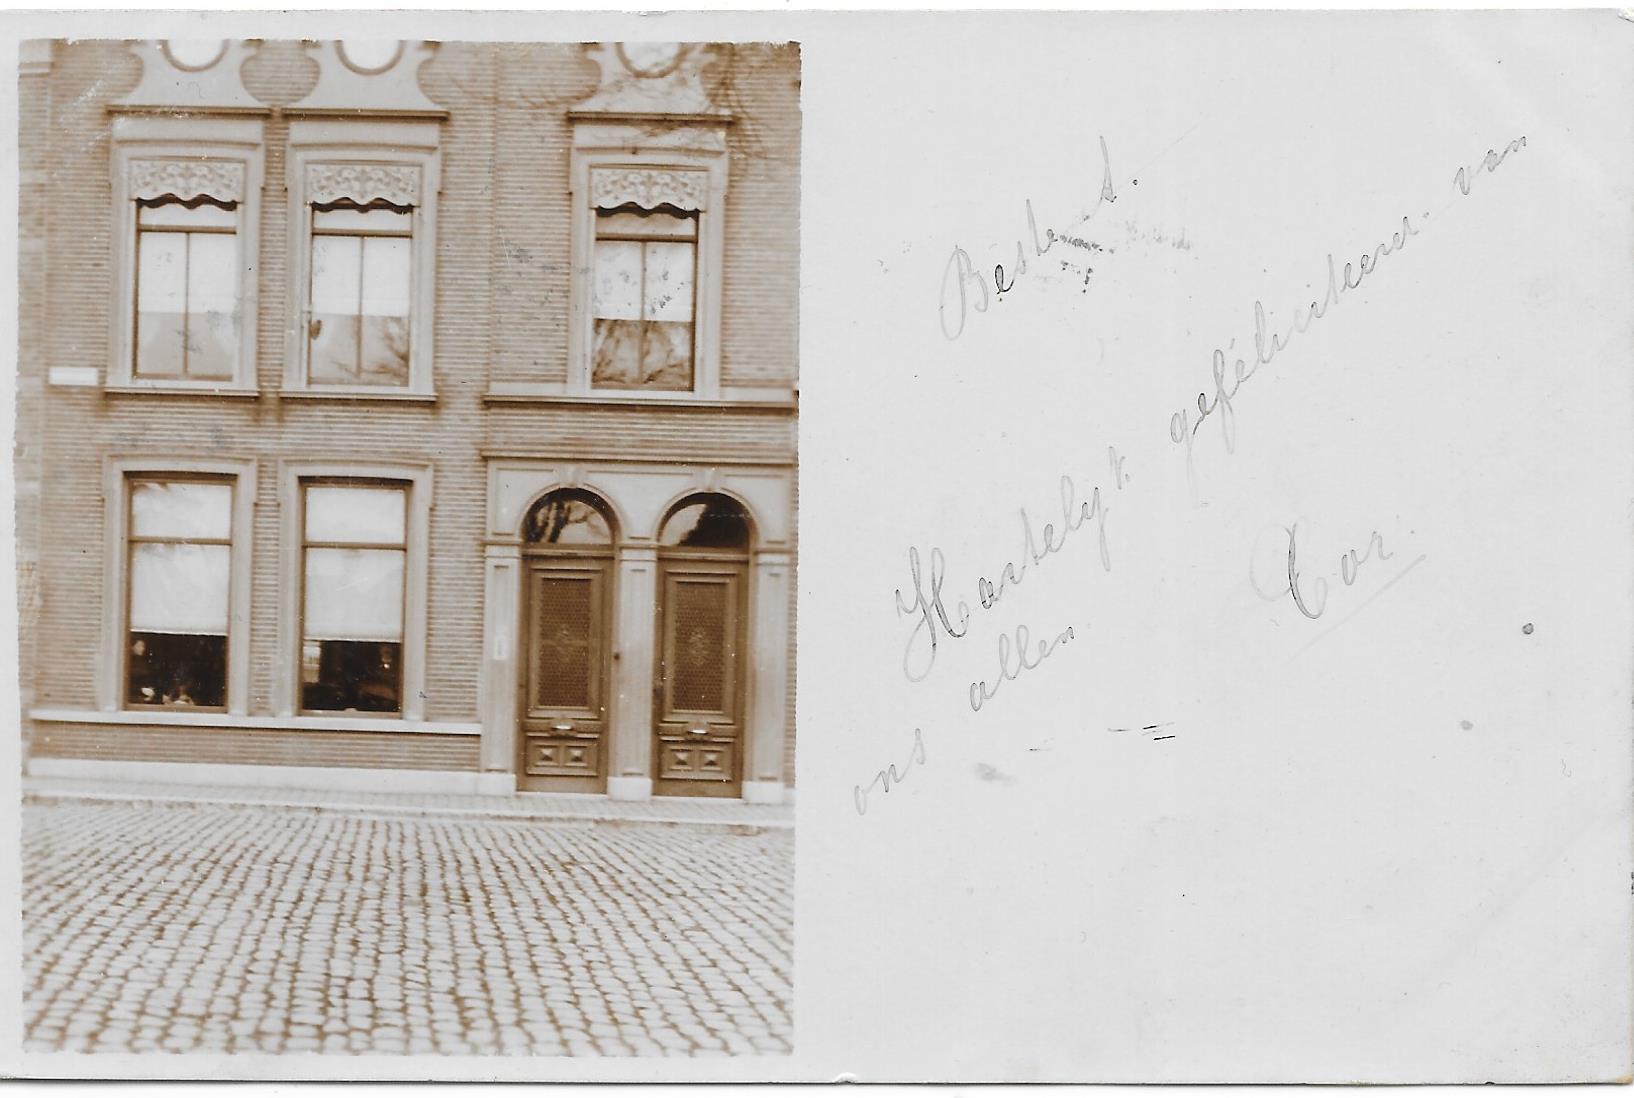 Beste A.
Hartelijk gefeliciteerd van
ons allen.
Cor.